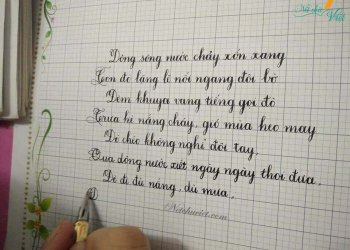 Nét chữ Việt
Dòng sông nước chảy xốn xang
Con đò lặng lẽ nối ngang đôi bờ
Đêm khuya vang tiếng gọi đò
Trưa hè nắng cháy, gió mùa heo may
Dì chèo không nghỉ đôi tay,
Qua dòng nước xiết ngày ngày thoi đưa.
Dì đi dù nắng, dù mưa,
Netchuviet.com